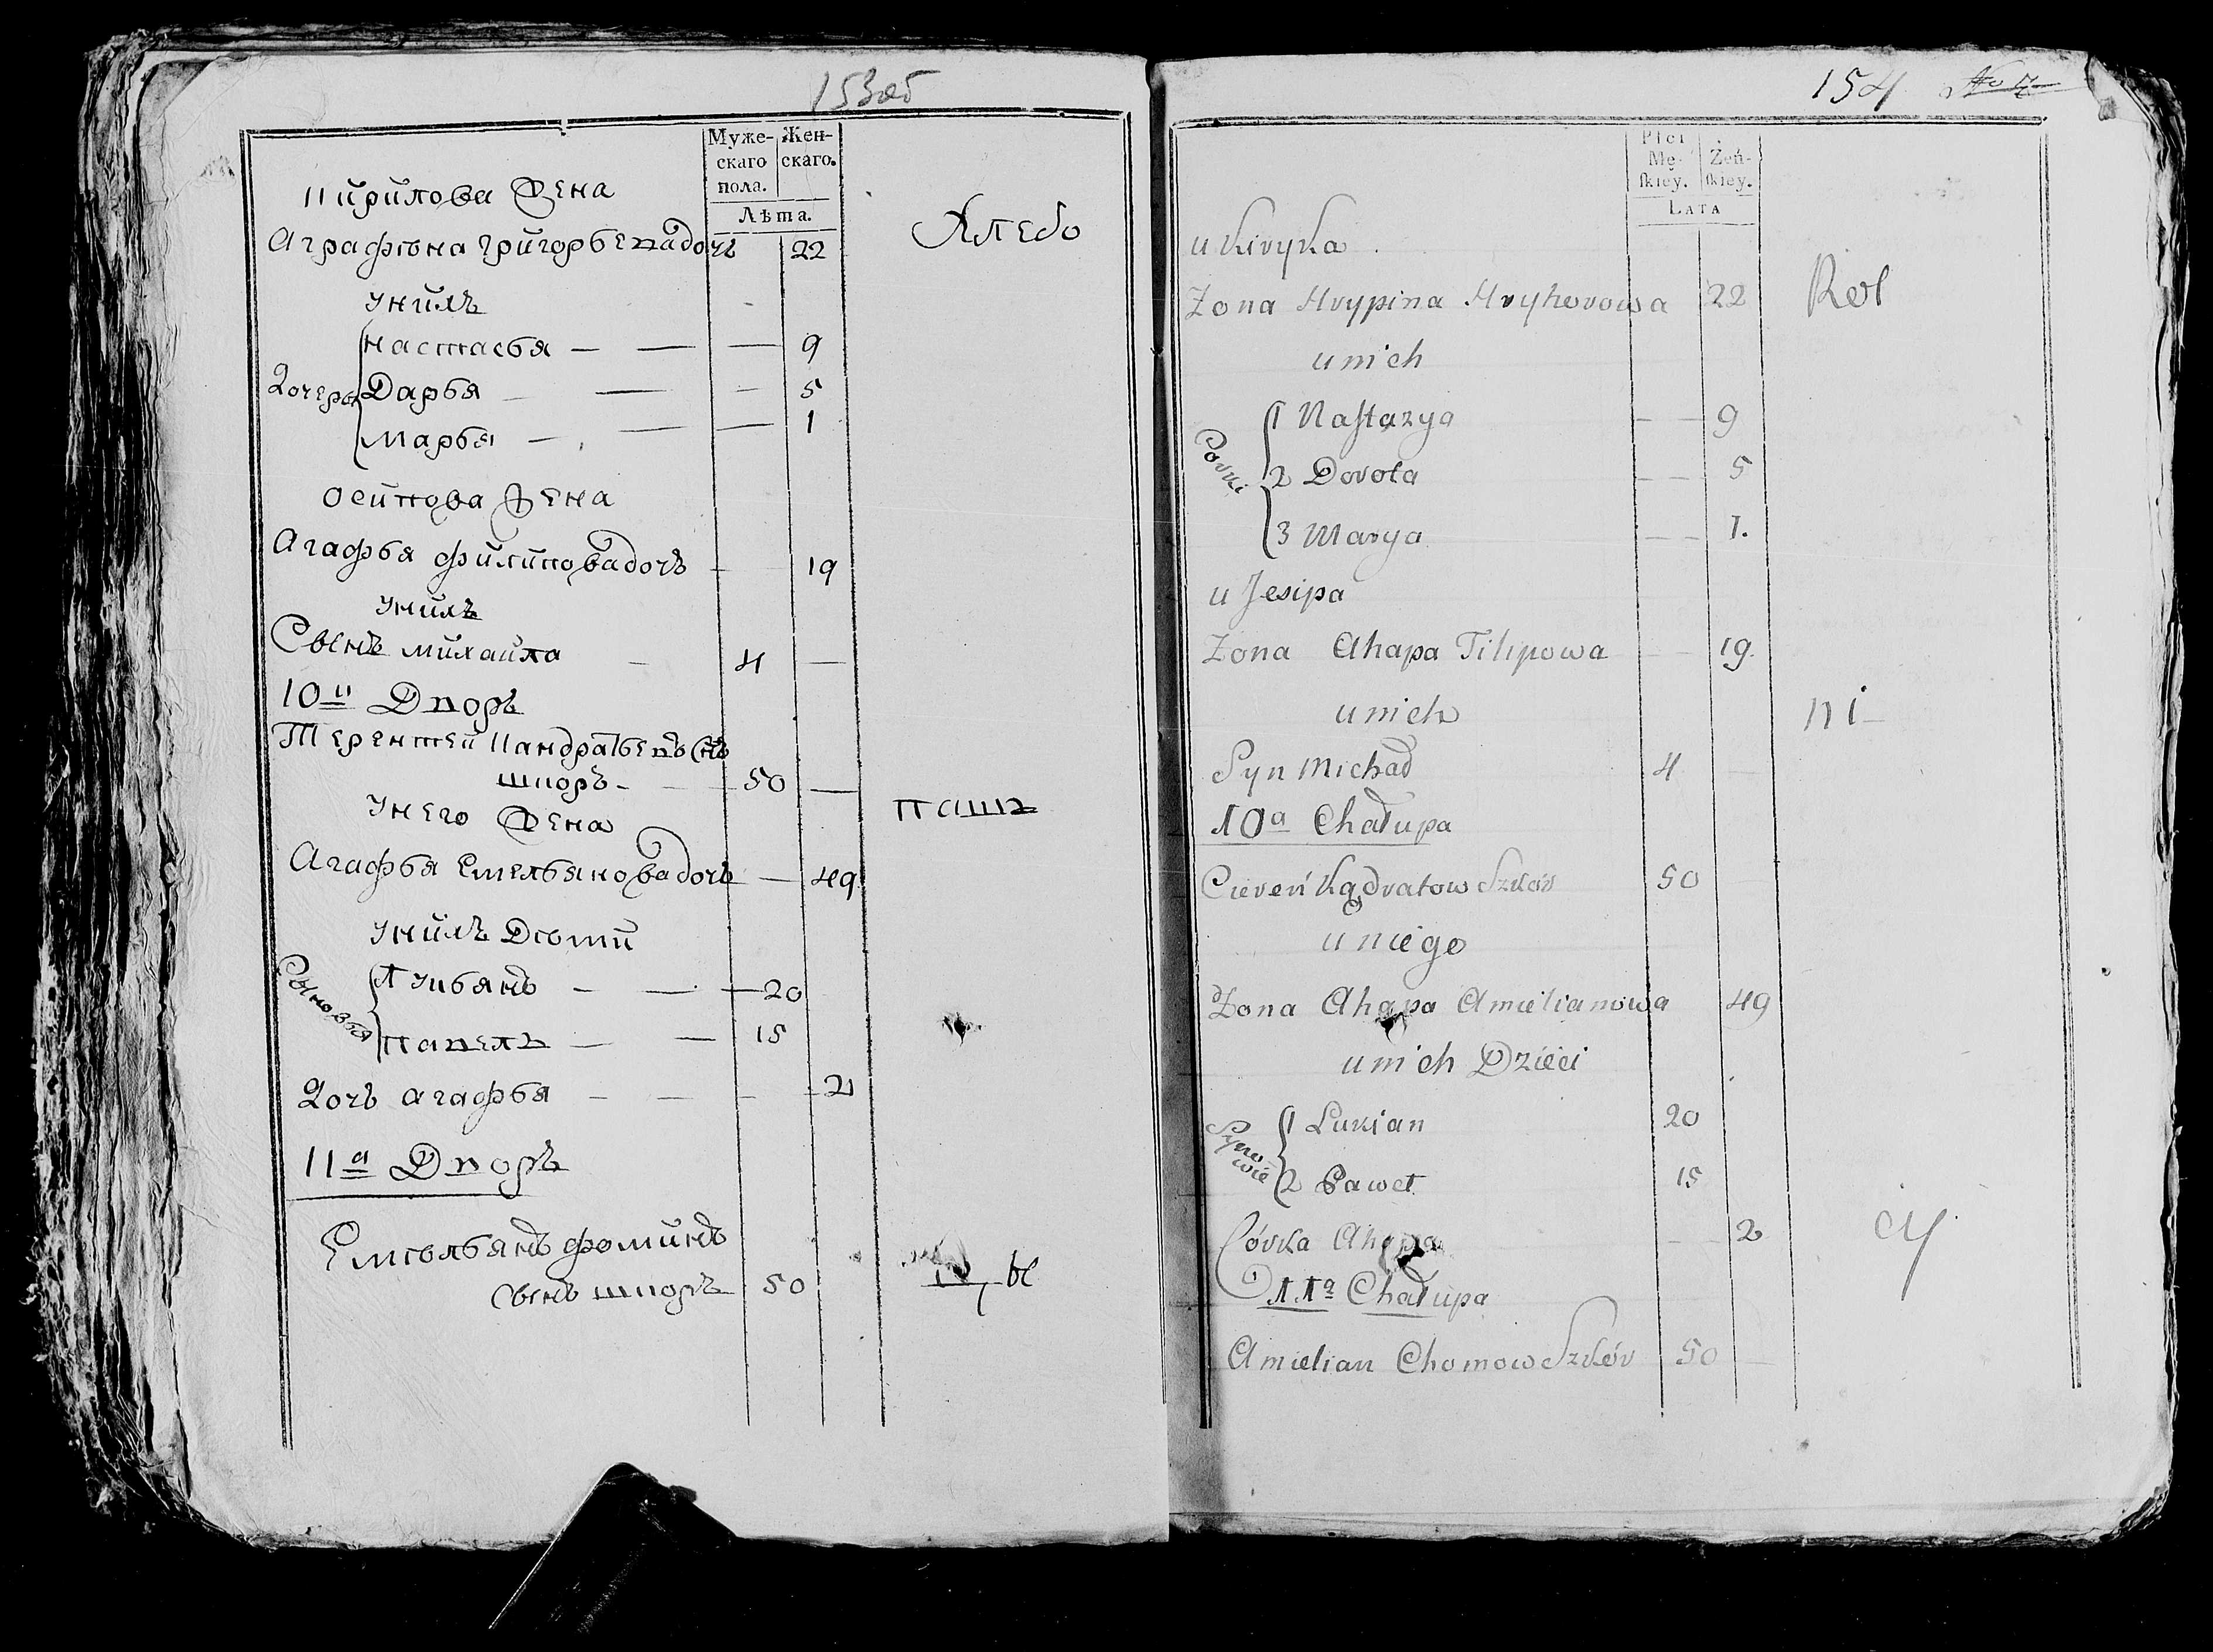 153об
Муже- Жен-
скаго скаго.
пола.
Лѣта.
Кирилова жена
Аграфѣна Григорьева дочь 22
Хлебо
у нихъ
Настасья — — — 9
Дочери Дарья — — — 5
Марья — — — 1
Осипова жена
Агафья Филипова дочь — 19
у нихъ
Сынъ Михайла — 4 —
10й Дворъ
Терентей Кандратьевъ снъ
шкоръ — 50 —
у него жена
паш
Агафья Емельянова дочь — 49
у нихъ дѣти
Сыновья Лукьянъ — — — 20
Павелъ — — 15
Дочь Агафья — — — 2
11й Дворъ
Емѣльянъ Фоминъ
сынъ шкоръ 50
цы
154 No 7
Płci
Mę- Żeń-
ſkiey. ſkiey.
LATA
u Kiryka
Zona Hrypina Hryhorowa 22
Rol
u nich
Corki 1 Naſtazya — — 9
2 Dorota — — 5
3 Marya — — 1.
u Jesipa
Zona Ahapa Filipowa — 19.
u nich
ni
Syn Michał 4 —
10a Chałupa
Cieren Kądratow Szkór 50
u niego
Zona Ahapa Amielianowa 49
u nich Dzieci
Syno-
wie 1 Lukian 20
2 Paweł 15
Córka Ahapa — 2
cy
11a Chałupa
Amielian Chomow Szkór 50 —